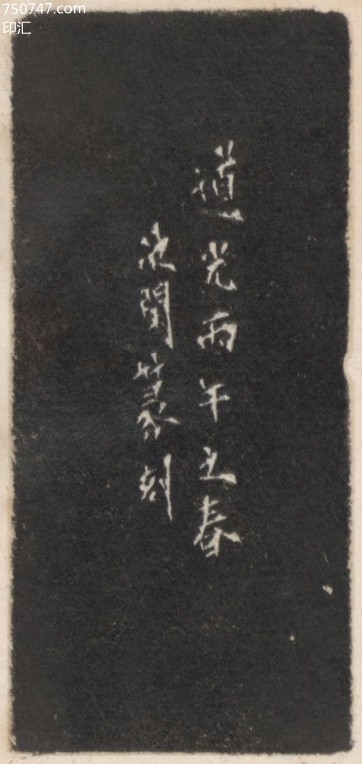 750747.com
印汇
道光丙午之春
次閒篆刻